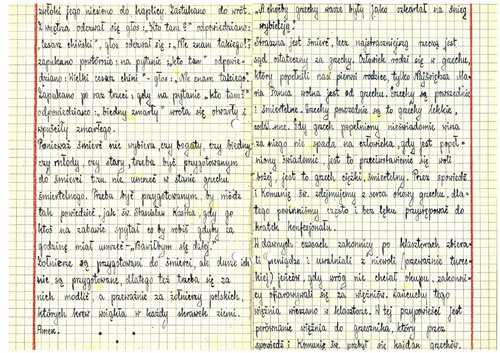 zwłoki jego niesiono do kaplicy. Zastukano do wrót.
Z wnętrza odezwał się głos: „Kto tam?" odpowiedziano:
„Cesarz chiński", głos odezwał się: „Nie znam takiego!",
zapukano powtórnie: na pytanie „kto tam" odpowie-
dziano: Wielki cesarz chin" - głos: „Nie znam takiego".
Zapukano po raz trzeci i gdy na pytanie „kto tam?"
odpowiedziano: „biedny zmarły" wrota się otwarły i
wpuściły zmarłego.
Ponieważ śmierć nie wybiera czy bogaty, czy biedny
czy młody, czy stary, trzeba być przygotowanym
do śmierci t.zn. nie umrzeć w stanie grzechu
śmiertelnego. Trzeba być przygotowanym by módz
tak powiedzieć, jak św. Stanisław Kostka, gdy go
ktoś na zabawie spytał co by robił gdyby za
godzinę miał umrzeć - „Bawiłbym się dalej".
Żołnierze są przygotowani do śmierci, ale dusze ich
nie są przygotowane, dlatego też trzeba się za
nich modlić a przeważnie za żołnierzy polskich,
których krew wsiąkła w każdy skrawek ziemi.
Amen.
A choćby grzechy wasze były jako szkarłat na śnieg
wybieleją.
Straszna jest śmierć, lecz najstraszniejszą rzeczą jest
sąd ostateczny za grzechy. Człowiek rodzi się w grzechu,
który popełnili nasi pierwsi rodzice, tylko Najświętsza Ma-
ria Panna wolna jest od grzechu. Grzechy są powszednie
i śmiertelne. Grzechy powszednie są to grzechy lekkie,
Gdy grzech popełnimy nieświadomie wina
za niego nie spada na człowieka, gdy jest popeł-
niony świadomie, jest to przeciwstawienie się woli
bożej, jest to grzech ciężki, śmiertelny. Przez spowiedź
i Komunię św. zdejmujemy z serca okowy grzechu, dla-
tego powinniśmy często i bez lęku przystępować do
kratek konfesjonału.
W dawnych czasach zakonnicy po klasztorach zbiera-
li pieniądze i uwalniali z niewoli (przeważnie turec-
kiej) jeńców, gdy wróg nie chciał okupu, zakonni-
cy ofiarowywali się za więźniów. Łańcuchy tego
więźnia wieszano w klasztorze. W tej przypowieści jest
porównanie więźnia do grzesznika, który przez
spowiedź i Komunię św. pozbył się kajdan grzechów.